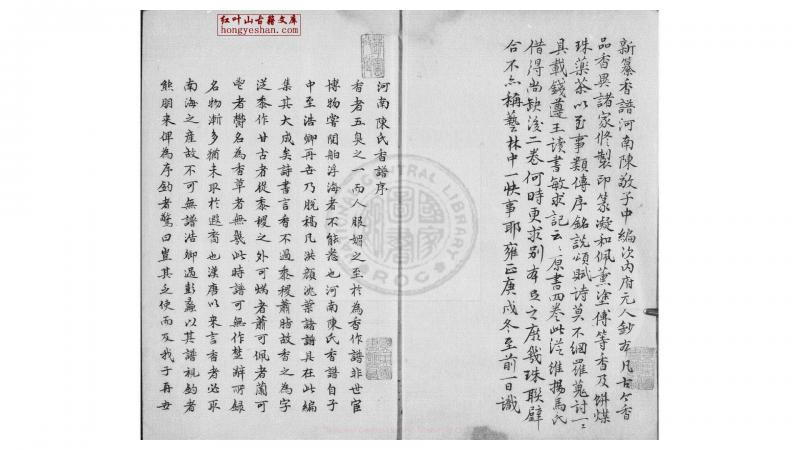 红叶山古籍文库
hongyeshan.com
新纂香譜河南陳敬子中編次內府元人鈔本凡古今香
品香異諸家修製印篆凝和佩薰塗傅等香及餅煤
珠藥茶以至事類傳序銘說頌賦詩莫不網羅蒐討一一
具載錢遵王讀書敏求記云原書四卷此從維揚馬氏
借得尚缺後二卷何時更求別本足之庶幾珠聯璧
合不亦稱藝林中一快事耶雍正庚戌冬至前一日識
河南陳氏香譜序
香者五臭之一而人服媚之至於為香作譜非世宦
博物嘗閱舶浮海者不能悉也河南陳氏香譜自子
中至浩卿再世乃脫稿凡洪顏沈葉諸譜具在此編
集其大成矣詩書言香不過黍稷蕭脂故香之為字
從黍作甘古者從黍稷之外可焫者蕭可佩者蘭可
鬯者鬱名為香草者無幾此時譜可無作楚辭所錄
名物漸多猶未取於遐裔也漢唐以來言香者必取
南海之產故不可無譜浩卿過彭蠡以其譜視釣者
熊朋來俾為序釣者驚曰豈其乏使而及我子再世
NATIONAL CENTRAL LIBRARY
ROC